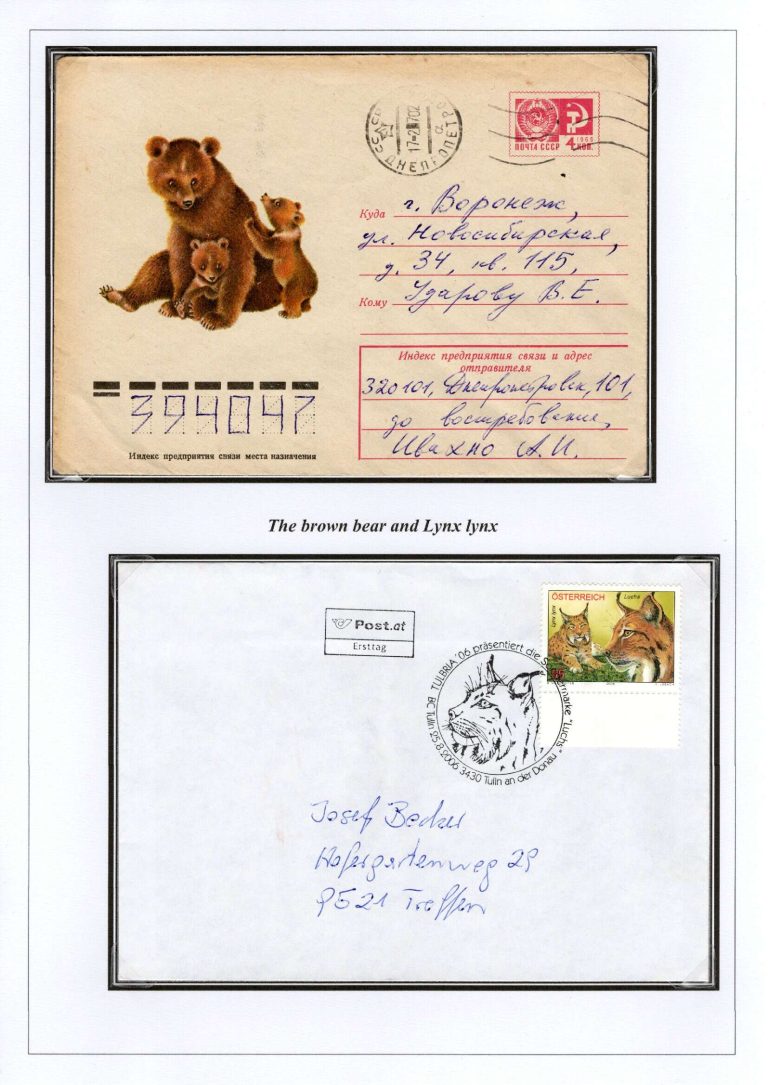 ДНЕПРОПЕТРО
17-2 7702
ПОЧТА СССР
1966
4 КОП.
Куда г. Воронеж,
ул. Новосибирская,
д. 34, кв. 115,
Кому Ударову В. Е.
Индекс предприятия связи и адрес
отправителя
320101, Днепропетровск, 101,
до востребования,
Ивахно А. И.
394047
Индекс предприятия связи места назначения
The brown bear and Lynx lynx
ÖSTERREICH
Luchs
Lynx lynx
Post.at
Ersttag
TULBRIA '06 präsentiert die marke "Luchs"
BC Tulln 25.8.2006 3430 Tulln an der Donau
Josef Becker
Hafergartenweg 29
9521 Treffen